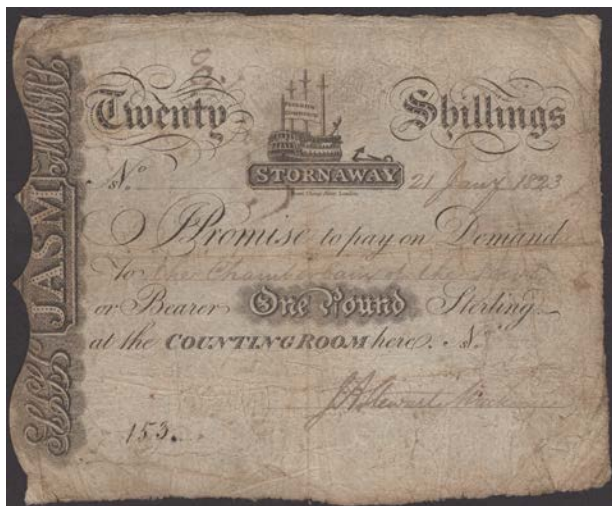 Twenty Shillings
STORNAWAY
No. 21 Jany 1823
I Promise to pay on Demand
To the Chamberlain of the
or Bearer One Pound Sterling
at the COUNTING ROOM here. No.
JASM
153.